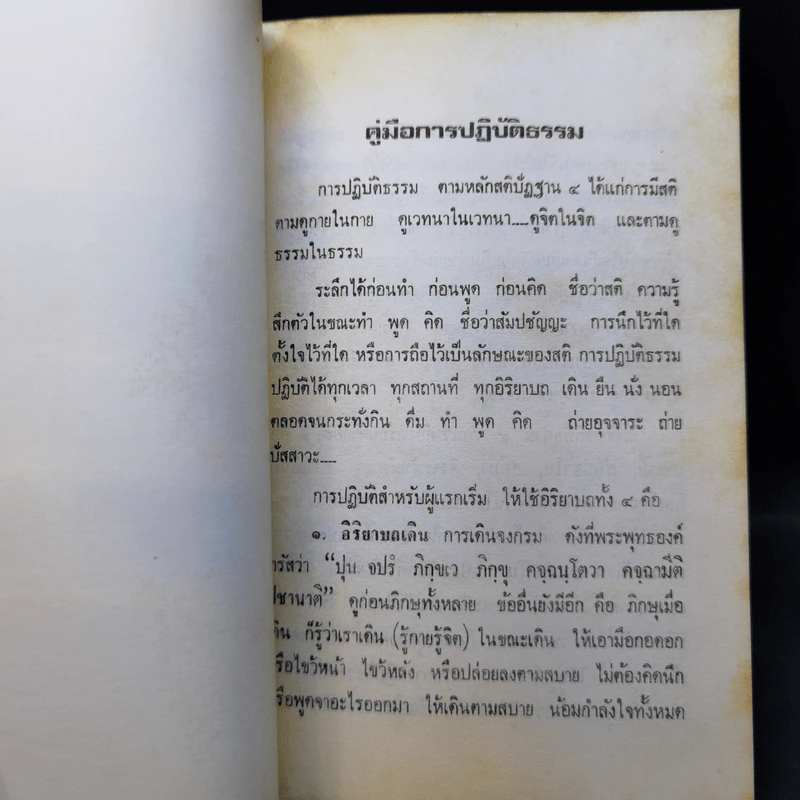 คู่มือการปฏิบัติธรรม
การปฏิบัติธรรม ตามหลักสติปัฏฐาน ๔ ได้แก่การมีสติ
ตามดูกายในกาย ดูเวทนาในเวทนา....ดูจิตในจิต และตามดู
ธรรมในธรรม
ระลึกได้ก่อนทำ ก่อนพูด ก่อนคิด ชื่อว่าสติ ความรู้
สึกตัวในขณะทำ พูด คิด ชื่อว่าสัมปชัญญะ การนึกไว้ที่ใด
ตั้งใจไว้ที่ใด หรือการถือไว้เป็นลักษณะของสติ การปฏิบัติธรรม
ปฏิบัติได้ทุกเวลา ทุกสถานที่ ทุกอิริยาบถ เดิน ยืน นั่ง นอน
ตลอดจนกระทั่งกิน ดื่ม ทำ พูด คิด ถ่ายอุจจาระ ถ่าย
ปัสสาวะ....
การปฏิบัติสำหรับผู้แรกเริ่ม ให้ใช้อิริยาบถทั้ง ๔ คือ
๑. อิริยาบถเดิน การเดินจงกรม ดังที่พระพุทธองค์
ตรัสว่า “ปุน จปรํ ภิกฺขเว ภิกฺขุ คจฺฉนฺโตวา คจฺฉามีติ
ปชานาติ” ดูก่อนภิกษุทั้งหลาย ข้ออื่นยังมีอีก คือ ภิกษุเมื่อ
เดิน ก็รู้ว่าเราเดิน (รู้กายรู้จิต) ในขณะเดิน ให้เอามือกอดอก
หรือไขว้หน้า ไขว้หลัง หรือปล่อยลงตามสบาย ไม่ต้องคิดนึก
หรือพูดจาอะไรออกมา ให้เดินตามสบาย น้อมกำลังใจทั้งหมด